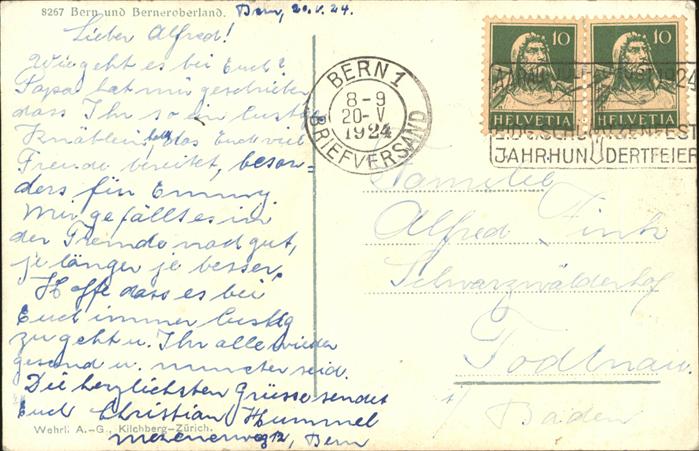 8267 Bern und Berneroberland.
Bern, 20.V.24.
Lieber Alfred!
Wie geht es bei Euch?
Papa hat mir geschrieben
dass Ihr so ein lustig
Knäblein habt, das Euch viel
Freude bereitet, beson-
ders für Emmy.
Mir gefällt es in
der Fremde noch gut,
je länger je besser.
Hoffe dass es bei
Euch immer lustig
zugeht u. Ihr alle wieder
gesund u. munter seid.
Die herzlichsten Grüsse sendet
Euch Christian Hummel
Bern
Wehrli A.-G., Kilchberg-Zürich.
BERN 1
8-9
20-V
1924
BRIEFVERSAND
10 10
HELVETIA HELVETIA
1924
EIDG. SCHÜTZENFEST
JAHRHUNDERTFEIER
Familie
Alfred Fink
Schwarzwälderhof
Todtnau
i/ Baden